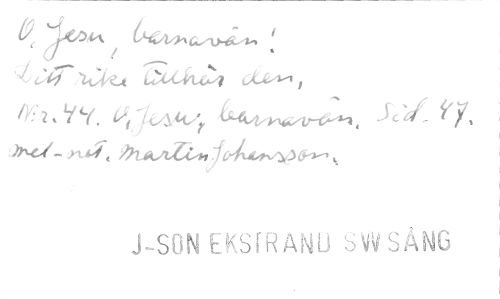 O, Jesu, barnavän!
Ditt rike tillhör den,
N:r. 44. O, Jesu, barnavän. Sid. 47.
mel-not. Martin Johansson.
J-SON EKSTRAND SW SÅNG